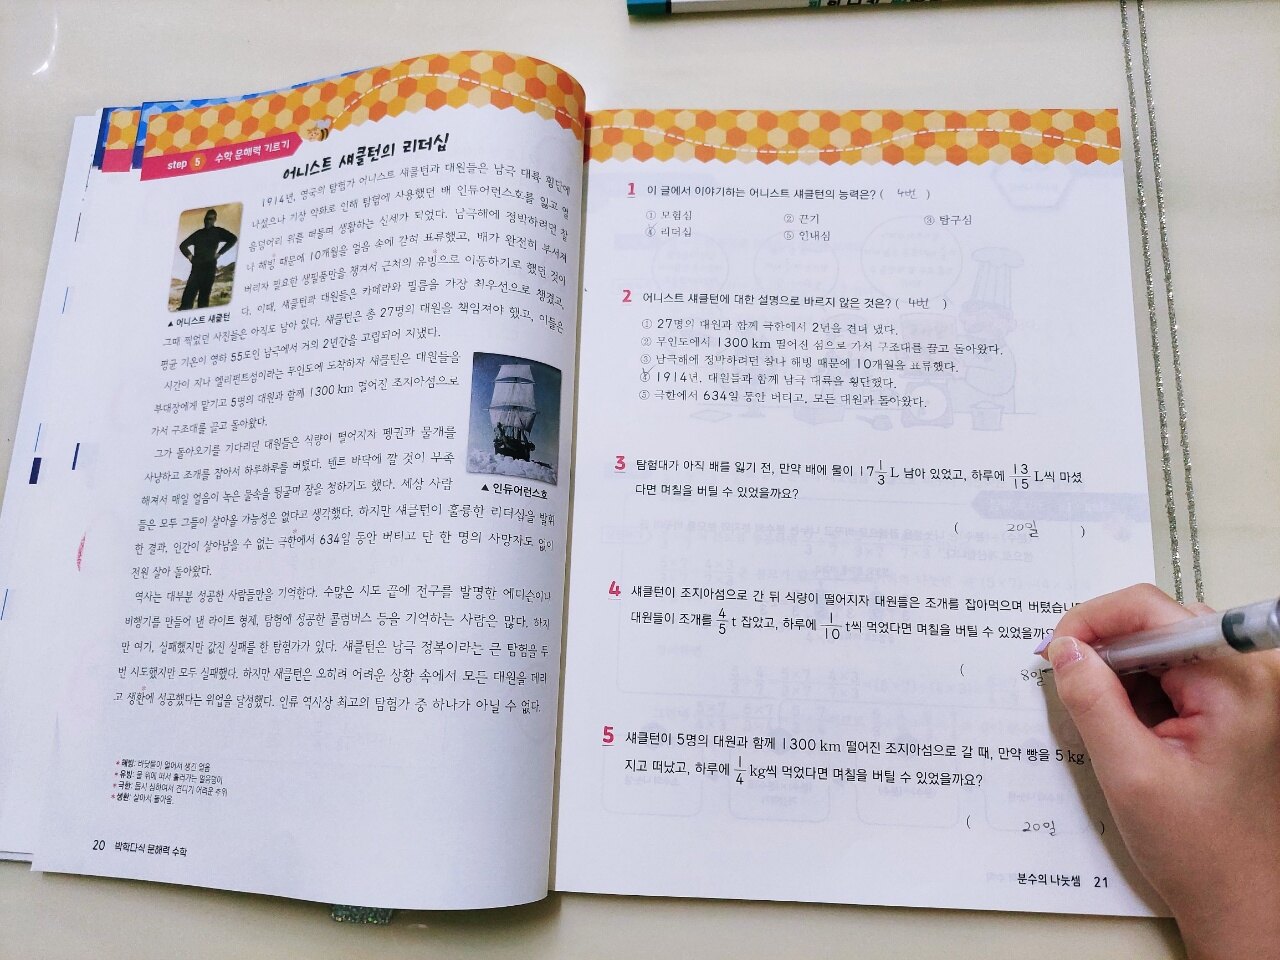 step 5 수학 문해력 기르기
어니스트 섀클턴의 리더십
1914년, 영국의 탐험가 어니스트 섀클턴과 대원들은 남극 대륙 횡단에
나섰으나 기상 악화로 인해 탐험에 사용했던 배 인듀어런스호를 잃고 얼
음덩어리 위를 떠돌며 생활하는 신세가 되었다. 남극해에 정박하려던 찰
나 해빙* 때문에 10개월을 얼음 속에 갇혀 표류했고, 배가 완전히 부서져
버리자 필요한 생필품만을 챙겨서 근처의 유빙*으로 이동하기로 했던 것이
다. 이때, 섀클턴과 대원들은 카메라와 필름을 가장 최우선으로 챙겼고,
▲ 어니스트 섀클턴
그때 찍었던 사진들은 아직도 남아 있다. 섀클턴은 총 27명의 대원을 책임져야 했고, 이들은
평균 기온이 영하 55도인 남극에서 거의 2년간을 고립되어 지냈다.
시간이 지나 엘리펀트섬이라는 무인도에 도착하자 섀클턴은 대원들을
부대장에게 맡기고 5명의 대원과 함께 1300 km 떨어진 조지아섬으로
가서 구조대를 끌고 돌아왔다.
그가 돌아오기를 기다리던 대원들은 식량이 떨어지자 펭귄과 물개를
사냥하고 조개를 잡아서 하루하루를 버텼다. 텐트 바닥에 깔 것이 부족
해져서 매일 얼음이 녹은 물속을 뒹굴며 잠을 청하기도 했다. 세상 사람
▲ 인듀어런스호
들은 모두 그들이 살아올 가능성은 없다고 생각했다. 하지만 섀클턴이 훌륭한 리더십을 발휘
한 결과, 인간이 살아남을 수 없는 극한*에서 634일 동안 버티고 단 한 명의 사망자도 없이
전원 살아 돌아왔다.
역사는 대부분 성공한 사람들만을 기억한다. 수많은 시도 끝에 전구를 발명한 에디슨이나
비행기를 만들어 낸 라이트 형제, 탐험에 성공한 콜럼버스 등을 기억하는 사람은 많다. 하지
만 여기, 실패했지만 값진 실패를 한 탐험가가 있다. 섀클턴은 남극 정복이라는 큰 탐험을 두
번 시도했지만 모두 실패했다. 하지만 섀클턴은 오히려 어려운 상황 속에서 모든 대원을 데리
고 생환*에 성공했다는 위업을 달성했다. 인류 역사상 최고의 탐험가 중 하나가 아닐 수 없다.
* 해빙: 바닷물이 얼어서 생긴 얼음
* 유빙: 물 위에 떠서 흘러가는 얼음덩이
* 극한: 몹시 심하여서 견디기 어려운 추위
* 생환: 살아서 돌아옴.
20 박학다식 문해력 수학
1 이 글에서 이야기하는 어니스트 섀클턴의 능력은? ( 4번 )
① 모험심 ② 끈기 ③ 탐구심
④ 리더십 ⑤ 인내심
2 어니스트 섀클턴에 대한 설명으로 바르지 않은 것은? ( 4번 )
① 27명의 대원과 함께 극한에서 2년을 견뎌 냈다.
② 무인도에서 1300 km 떨어진 섬으로 가서 구조대를 끌고 돌아왔다.
③ 남극해에 정박하려던 찰나 해빙 때문에 10개월을 표류했다.
④ 1914년, 대원들과 함께 남극 대륙을 횡단했다.
⑤ 극한에서 634일 동안 버티고, 모든 대원과 돌아왔다.
3 탐험대가 아직 배를 잃기 전, 만약 배에 물이 17 1/3 L 남아 있었고, 하루에 13/15 L씩 마셨
다면 며칠을 버틸 수 있었을까요?
( 20일 )
4 섀클턴이 조지아섬으로 간 뒤 식량이 떨어지자 대원들은 조개를 잡아먹으며 버텼습니
대원들이 조개를 4/5 t 잡았고, 하루에 1/10 t씩 먹었다면 며칠을 버틸 수 있었을까요
( 8일
5 섀클턴이 5명의 대원과 함께 1300 km 떨어진 조지아섬으로 갈 때, 만약 빵을 5 kg
지고 떠났고, 하루에 1/4 kg씩 먹었다면 며칠을 버틸 수 있었을까요?
( 20일 )
분수의 나눗셈 21